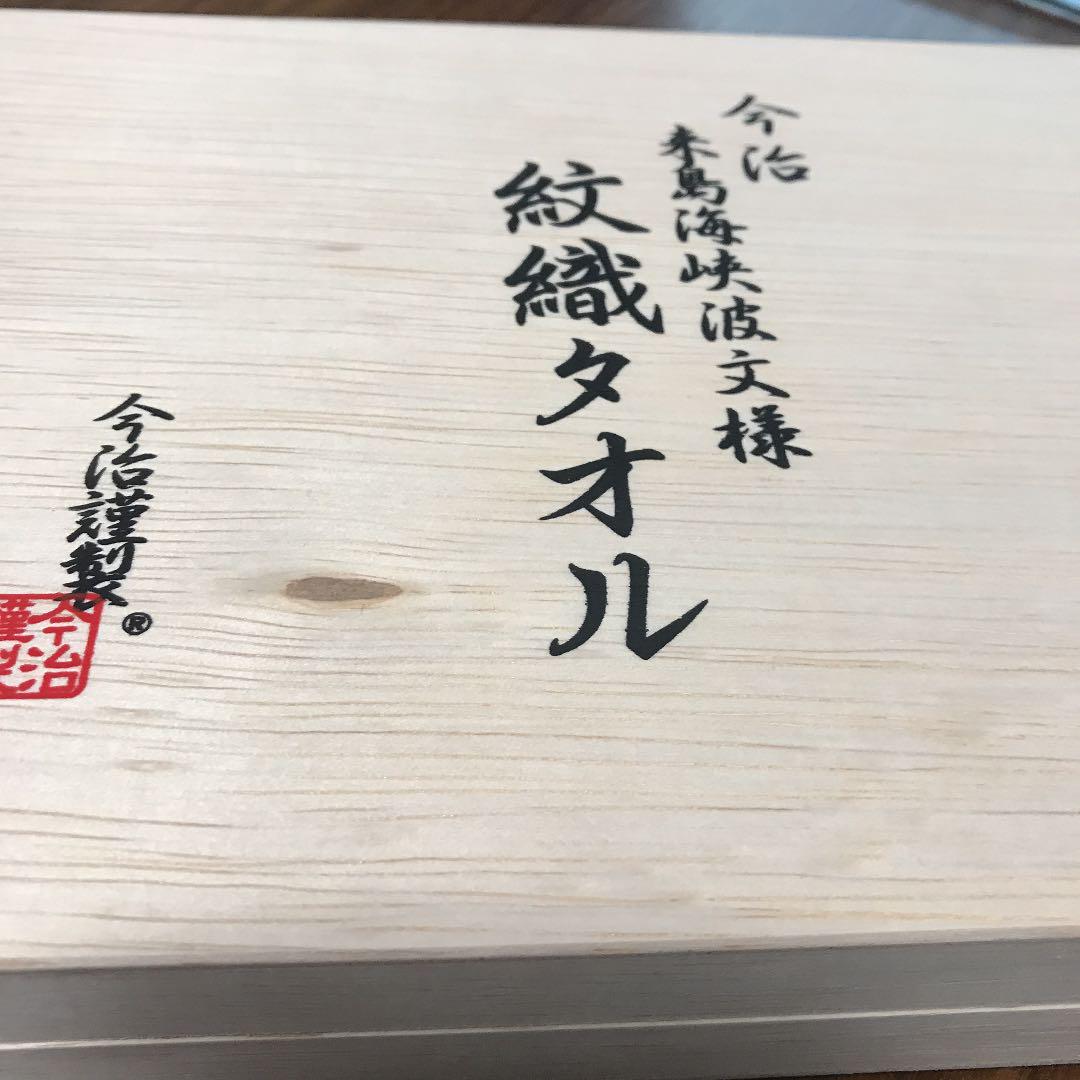 今治
来島海峡波文様
紋織タオル
今治謹製®
今治
謹製